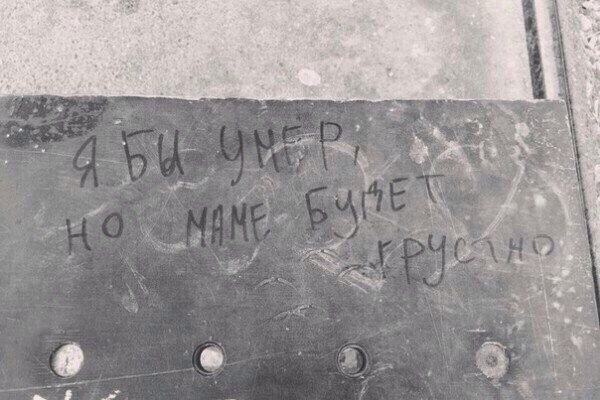 Я БЫ УМЕР,
НО МАМЕ БУДЕТ
ГРУСТНО